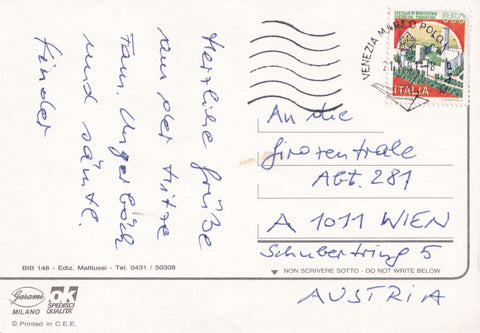 Herzliche Grüße
aus der Hitze
Fam. Ungerböck
und sämtl.
Kinder
CASTELLO DI MONTECCHIO
CASTIGLION FIORENTINO
650
ITALIA
VENEZIA MARCO POLO
An die
Girozentrale
Abt. 281
A 1011 WIEN
Schubertring 5
AUSTRIA
BIB 148 - Ediz. Mattiussi - Tel. 0431 / 50308
▼ NON SCRIVERE SOTTO - DO NOT WRITE BELOW
Garami
MILANO
OK
SPEDISCI
QUALITÀ
© Printed in C.E.E.